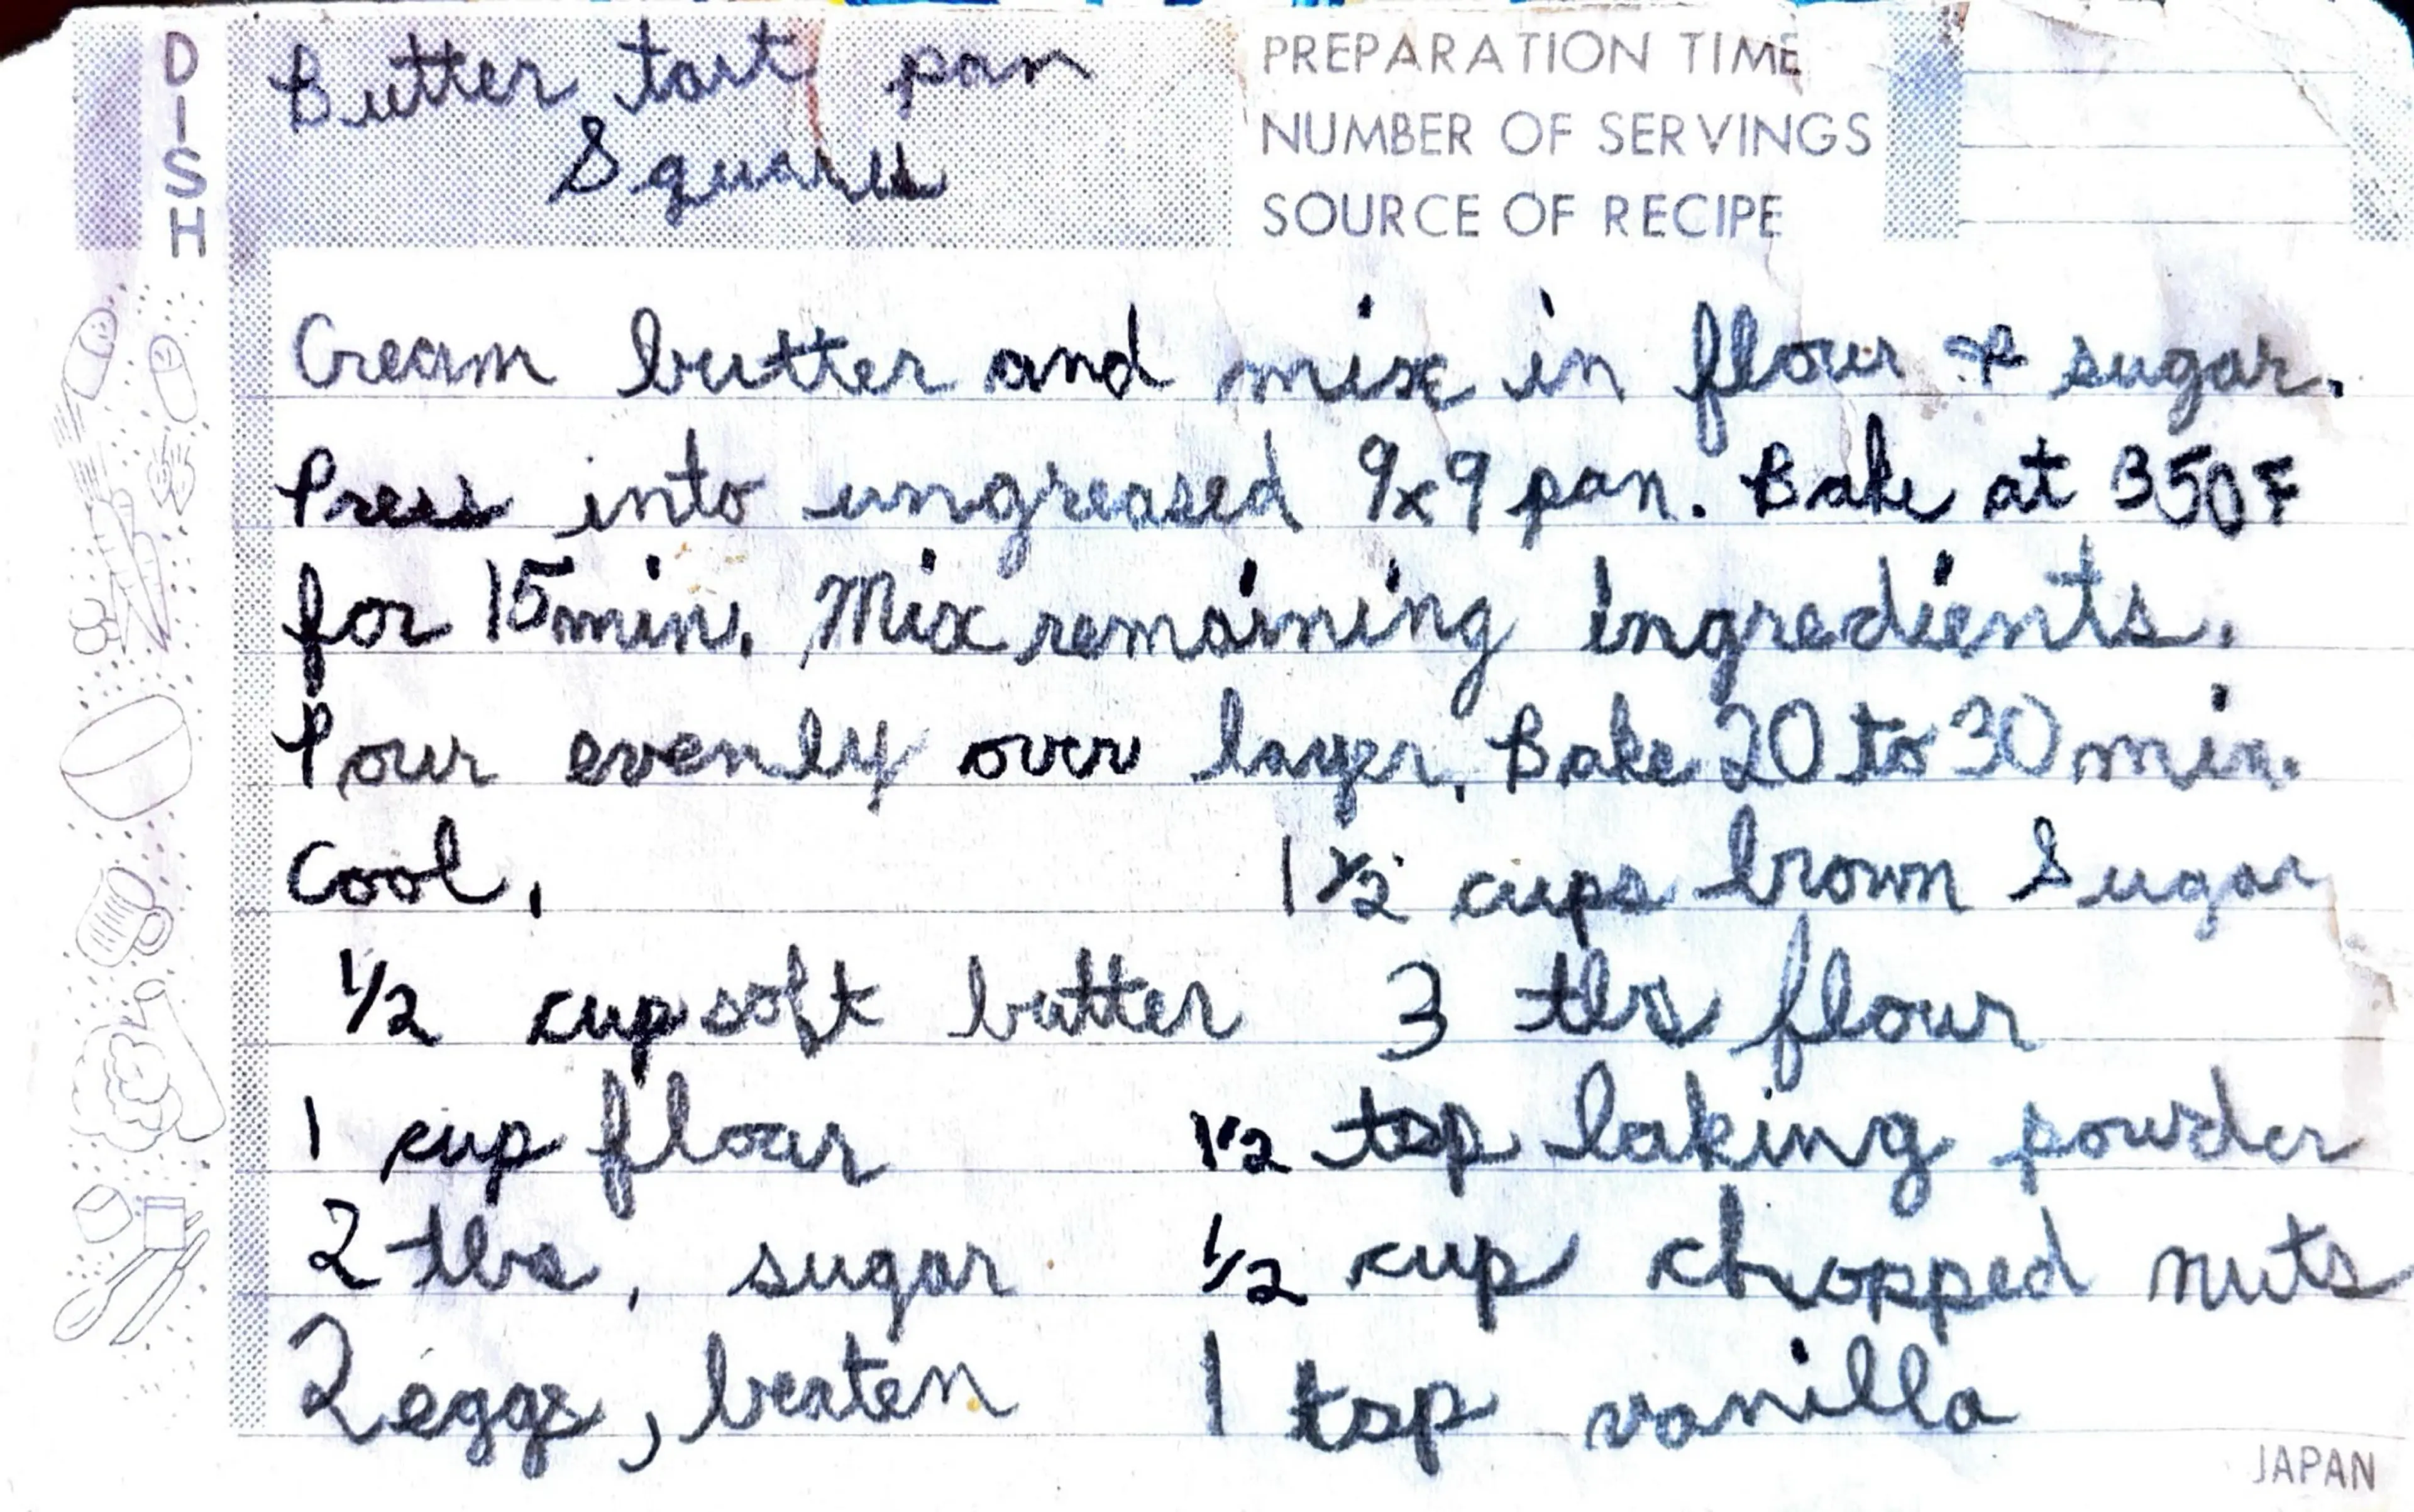 DISH
Butter tart pan
Squares
PREPARATION TIME
NUMBER OF SERVINGS
SOURCE OF RECIPE
Cream butter and mix in flour & sugar.
Press into ungreased 9x9 pan. Bake at 350F
for 15 min. Mix remaining ingredients.
Pour evenly over layer. Bake 20 to 30 min.
Cool.
1 1/2 cups brown Sugar
1/2 cup soft butter
3 tbs flour
1 cup flour
1/2 tsp baking powder
2 tbs, sugar
1/2 cup chopped nuts
2 eggs, beaten
1 tsp vanilla
JAPAN